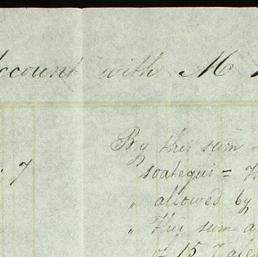 Account with M
By this sum
7 soategui =
" allowed by
" This sum a
of 15